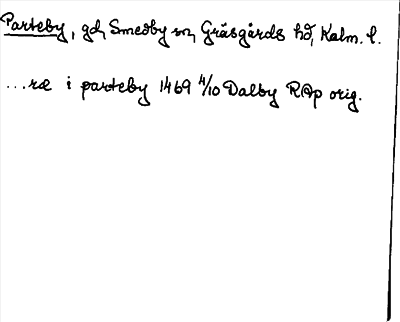 Parteby, gd, Smedby sn, Gräsgårds hd, Kalm. l.
...ræ i parteby 1469 4/10 Dalby RAp orig.